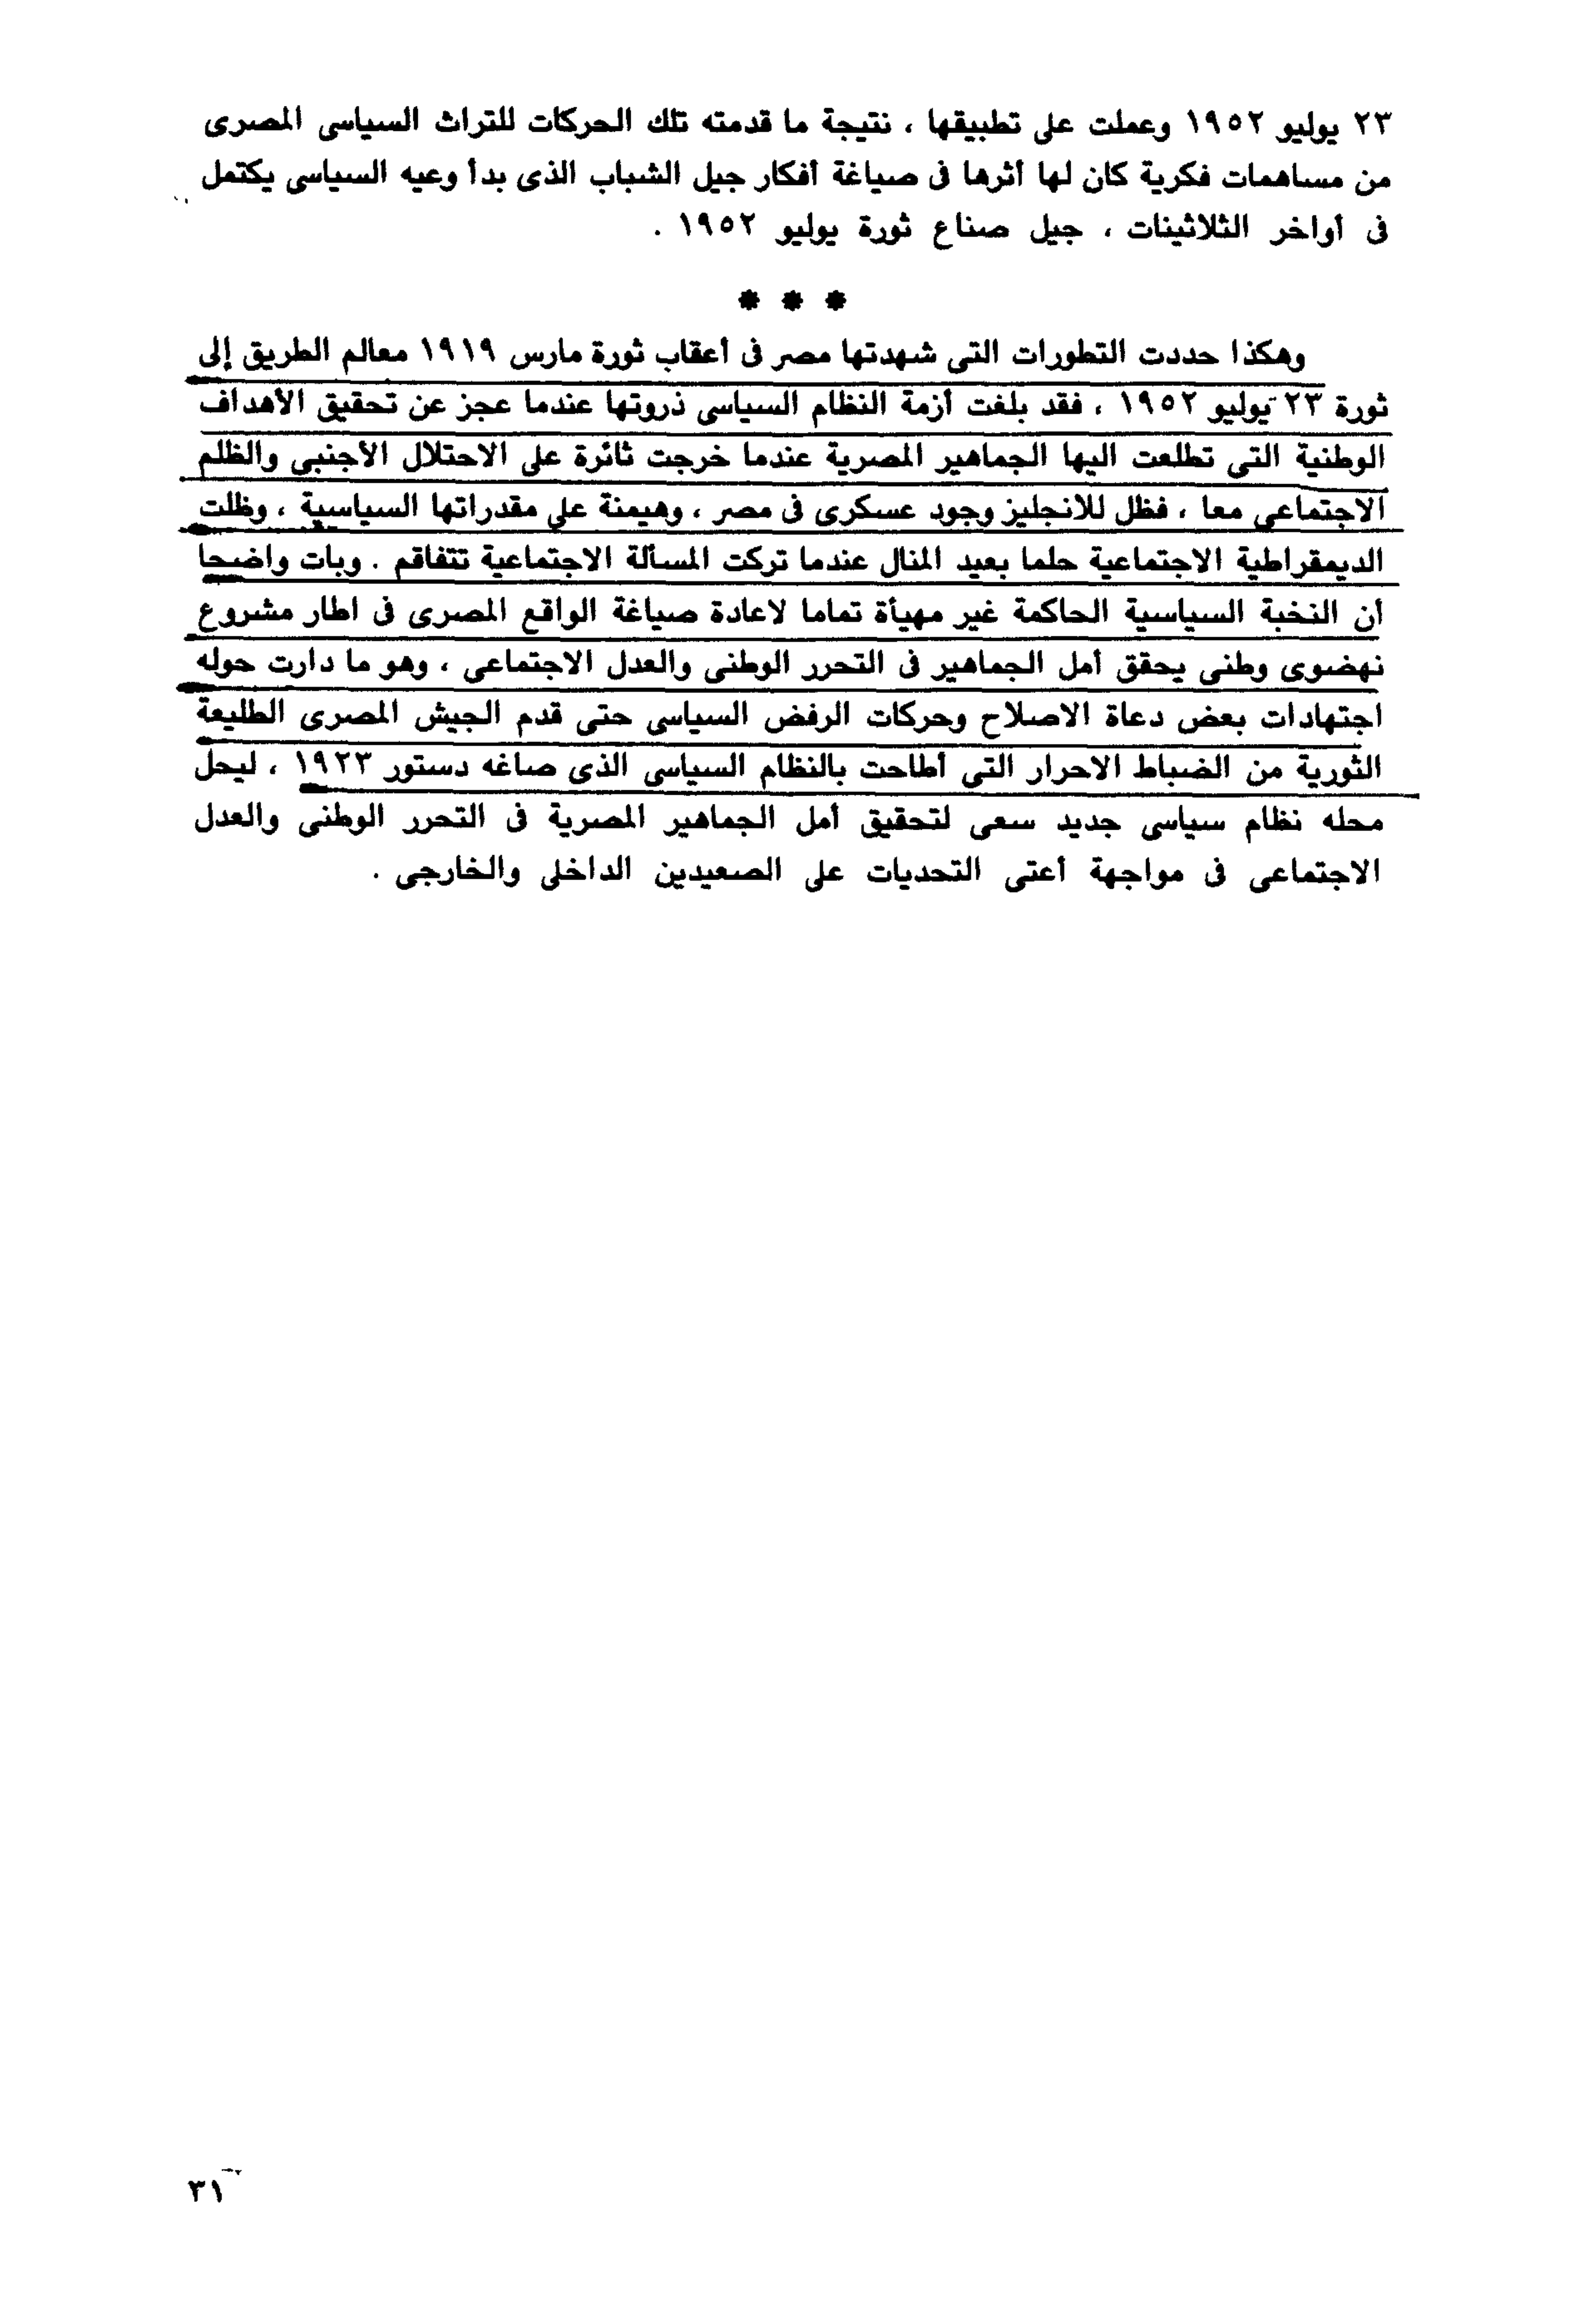 ٢٣ يوليو ١٩٥٢ وعملت على تطبيقها ، نتيجة ما قدمته تلك الحركات للتراث السياسى المصرى
من مساهمات فكرية كان لها أثرها فى صياغة أفكار جيل الشباب الذى بدأ وعيه السياسى يكتمل
فى أواخر الثلاثينات ، جيل صناع ثورة يوليو ١٩٥٢ .
* * *
وهكذا حددت التطورات التى شهدتها مصر فى أعقاب ثورة مارس ١٩١٩ معالم الطريق إلى
ثورة ٢٣ يوليو ١٩٥٢ ، فقد بلغت أزمة النظام السياسى ذروتها عندما عجز عن تحقيق الأهداف
الوطنية التى تطلعت اليها الجماهير المصرية عندما خرجت ثائرة على الاحتلال الأجنبى والظلم
الاجتماعى معا ، فظل للانجليز وجود عسكرى فى مصر ، وهيمنة على مقدراتها السياسية ، وظلت
الديمقراطية الاجتماعية حلما بعيد المنال عندما تركت المسألة الاجتماعية تتفاقم . وبات واضحا
أن النخبة السياسية الحاكمة غير مهيأة تماما لاعادة صياغة الواقع المصرى فى اطار مشروع
نهضوى وطنى يحقق أمل الجماهير فى التحرر الوطنى والعدل الاجتماعى ، وهو ما دارت حوله
اجتهادات بعض دعاة الاصلاح وحركات الرفض السياسى حتى قدم الجيش المصرى الطليعة
الثورية من الضباط الاحرار التى أطاحت بالنظام السياسى الذى صاغه دستور ١٩٢٣ ، ليحل
محله نظام سياسى جديد سعى لتحقيق أمل الجماهير المصرية فى التحرر الوطنى والعدل
الاجتماعى فى مواجهة أعتى التحديات على الصعيدين الداخلى والخارجى .
٣١